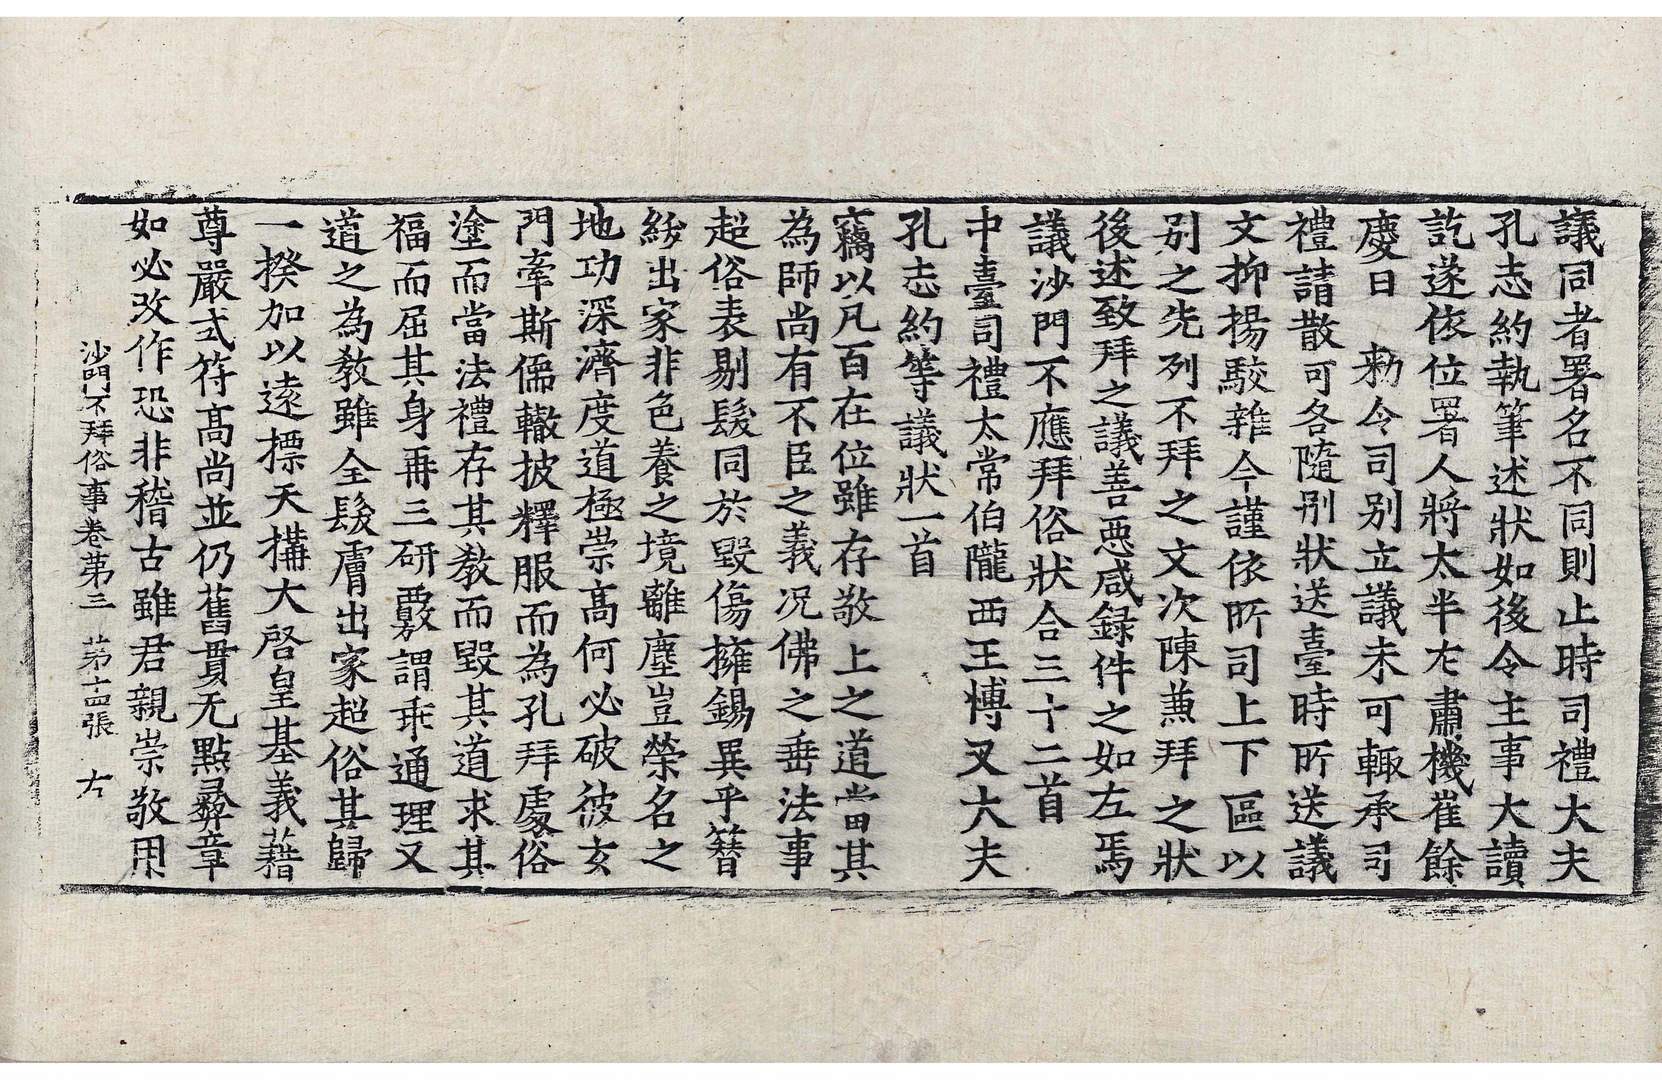 議同者署名不同則止時司禮大夫
孔志約執筆述狀如後令主事大讀
訖遂依位署人將太半左肅機崔餘
慶日　勑令司别立議未可輙承司
禮請散可各隨別狀送臺時所送議
文抑揚駮雜今謹依所司上下區以
别之先列不拜之文次陳兼拜之狀
後述致拜之議善惡咸録件之如左焉
議沙門不應拜俗狀合三十二首
中臺司禮太常伯隴西王博叉大夫
孔志約等議狀一首
竊以凡百在位雖存敬上之道當其
為師尚有不臣之義况佛之垂法事
超俗表剔髮同於毀傷擁錫異乎簪
紱出家非色養之境離塵豈榮名之
地功深濟度道極崇高何必破彼玄
門牽斯儒轍披釋服而為孔拜處俗
塗而當法禮存其教而毀其道求其
福而屈其身再三研覈謂乖通理又
道之為教雖全髮膚出家超俗其歸
一揆加以遠標天構大啓皇基義藉
尊嚴式符高尚並仍舊貫无點彝章
如必改作恐非稽古雖君親崇敬用
沙門不拜俗事卷第三　第十四張　左